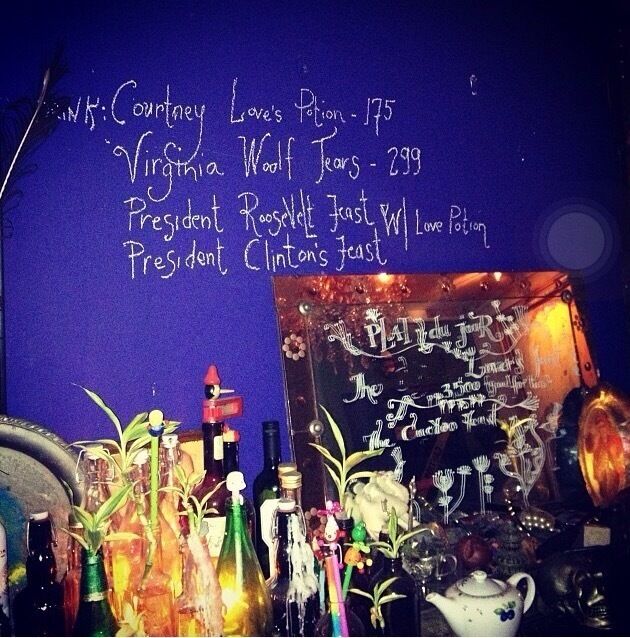 INK: Courtney Love's Potion - 175
Virginia Woolf Tears - 299
President Roosevelt Feast W/ Love Potion
President Clinton's Feast
PLAT du jouR
The Lover's
3,500 "good for two"
the Feast